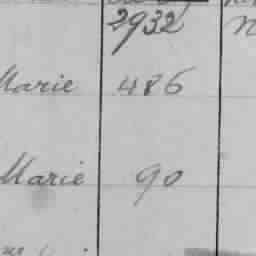 2932
Marie 486
Marie 90